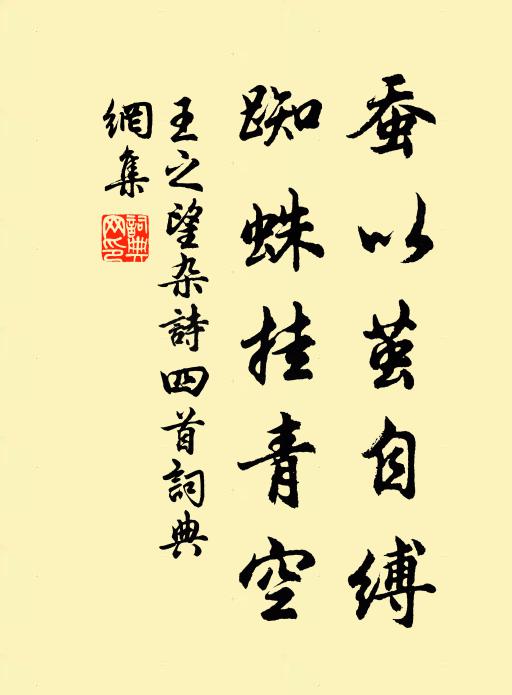 蚕以茧自缚
蜘蛛挂青空
王之望杂詩四首詞典
網集
詞典網印